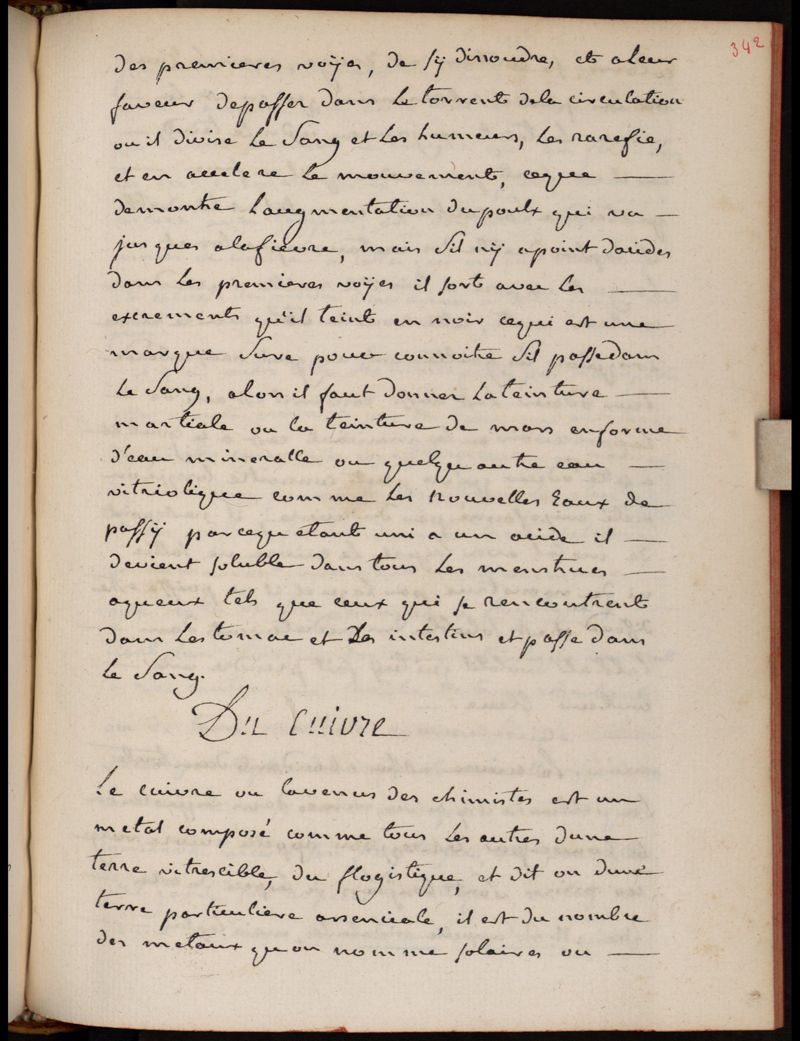 342
des premieres voÿes, de sÿ dissoudre, et aleur
faveur depasser dans le torrent dela circulation
ou il divise le sang et les humeurs, les rarefie,
et en accelere le mouvement, ceque
demontre laugmentation dupoulx qui va
jusques alafievre, mais sil nÿ apoint dacides
dans les premieres voÿes il sort avec les
excrements qu'il teint en noir cequi est une
marque sure pour connoitre sil passedans
le sang, alors il faut donner lateinture
martiale ou la teinture de mars enforme
d'eau mineralle ou quelqu autre eau
vitriolique comme les nouvelles Eaux de
passÿ parcequ etant uni a un acide il
devient soluble dans tous les menstrues
aqueux tels que ceux qui se rencontrent
dans lestomac et Les intestins et passe dans
le sang.
Du Cuivre
Le cuivre ou lavenus des chimistes est un
metal composé comme tous les autres dune
terre vitrescible, du flogistique, et dit on dune
terre particuliere arsenicale, il est du nombre
des metaux quon nomme solaires ou